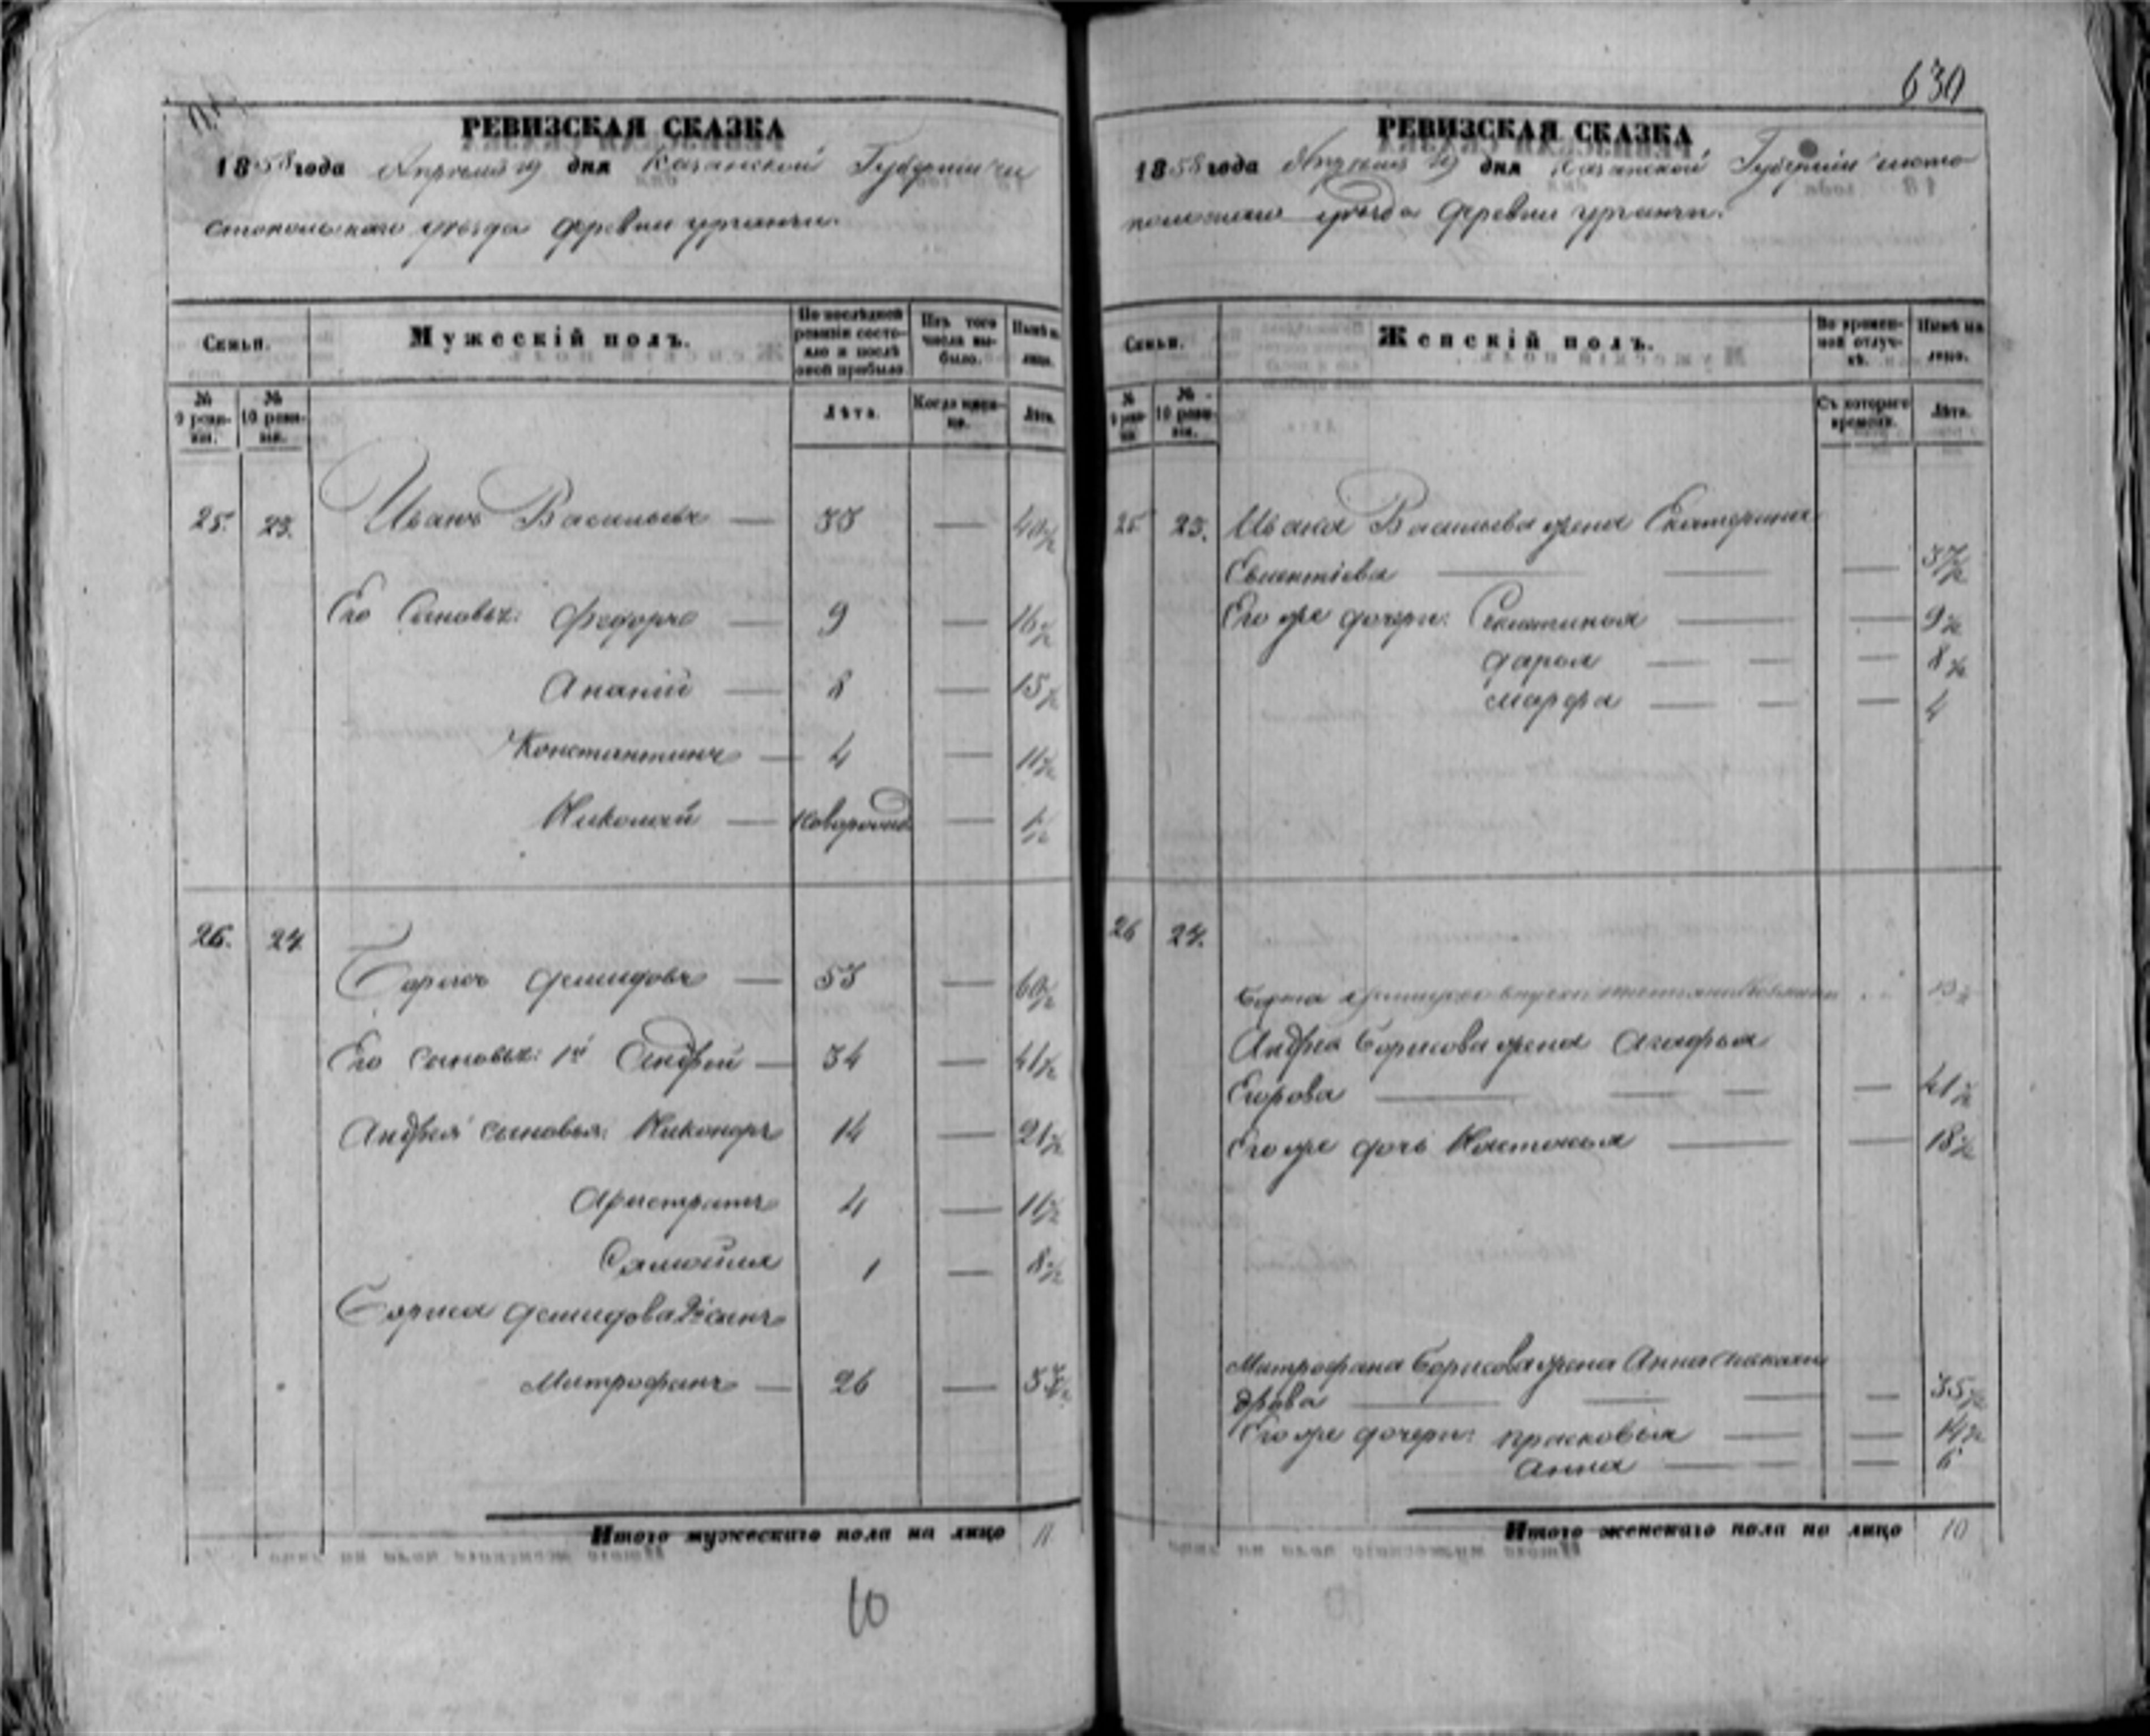 630
РЕВИЗСКАЯ СКАЗКА
1858 года Апреля дня Казанской Губернiи чи
стопольскаго уезда деревни Урганчи.
Семьи.
Мужескiй полъ.
По послѣдней ревизiи состояло и послѣ оной прибыло.
Изъ того числа выбыло.
Нынѣ на лицо.
№ 9 ревизiи.
№ 10 ревизiи.
Лѣта.
Когда именно.
Лѣта.
25. 23. Иванъ Васильевъ — 33 — 40½
Его Сыновья: Федоръ — 9 — 16½
Ананiй — 8 — 15½
Константинъ — 4 — 11½
Николай — новорожд. — ½
26. 24. Борисъ Демидовъ — 53 — 60½
Его сыновья: 1й Андрей — 34 — 41½
Андрея сыновья: Никоноръ 14 — 21½
Аристратъ 4 — 11½
Самойла 1 — 8½
Бориса Демидова 2й сынъ
Митрофанъ — 26 — 33½
Итого мужескаго пола на лицо 11
10
РЕВИЗСКАЯ СКАЗКА
1858 года Апреля дня Казанской Губернiи чисто
польскаго уѣзда деревни Урганчи.
Семьи.
Женскiй полъ.
Во временной отлучкѣ.
Нынѣ на лицо.
№ 9 ревизiи
№ 10 ревизiи.
Съ котораго времени.
Лѣта.
25 23. Ивана Васильева жена Екатерина
— — — 37½
Его же дочери: — — 9½
Дарья — — — 8½
Марфа — — — 4
26 24.
Бориса
Андрея Борисова жена Агафья
Егорова — — — — 41½
Его же дочь Настасья — — 18½
Митрофана Борисова жена Анна
— — — — 35½
Его же дочери: Прасковья — — 14½
Анна — — — 6
Итого женскаго пола на лицо 10